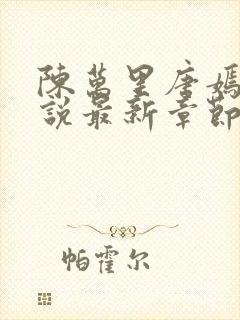 陳萬里唐嫣
説最新章節
帕霍尔